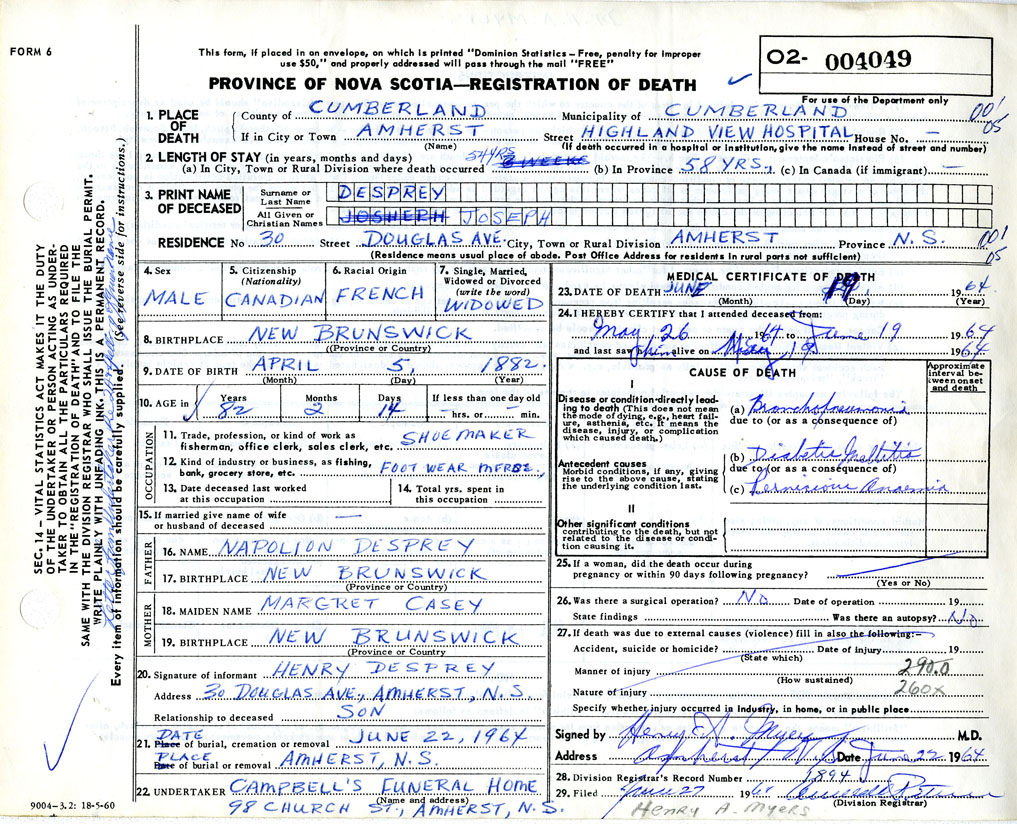 FORM 6
This form, if placed in an envelope, on which is printed "Dominion Statistics – Free, penalty for improper
use $50," and properly addressed will pass through the mail "FREE"
PROVINCE OF NOVA SCOTIA—REGISTRATION OF DEATH
02- 004049
For use of the Department only
1. PLACE OF DEATH
County of CUMBERLAND Municipality of CUMBERLAND 001
05
If in City or Town AMHERST Street HIGHLAND VIEW HOSPITAL House No. —
(Name) (If death occurred in a hospital or institution, give the name instead of street and number)
2. LENGTH OF STAY (in years, months and days)
(a) In City, Town or Rural Division where death occurred 54 YRS (b) In Province 58 YRS. (c) In Canada (if immigrant) —
3. PRINT NAME OF DECEASED
Surname or Last Name DESPREY
All Given or Christian Names JOSHEPH JOSEPH
RESIDENCE No 30 Street DOUGLAS AVE. City, Town or Rural Division AMHERST Province N.S. 001
05
(Residence means usual place of abode. Post Office Address for residents in rural parts not sufficient)
4. Sex MALE
5. Citizenship (Nationality) CANADIAN
6. Racial Origin FRENCH
7. Single, Married, Widowed or Divorced (write the word) WIDOWED
8. BIRTHPLACE NEW BRUNSWICK
(Province or Country)
9. DATE OF BIRTH APRIL 5, 1882.
(Month) (Day) (Year)
10. AGE in Years Months Days If less than one day old
82 2 14 — hrs. or — min.
OCCUPATION
11. Trade, profession, or kind of work as
fisherman, office clerk, sales clerk, etc. SHOEMAKER
12. Kind of industry or business, as fishing,
bank, grocery store, etc. FOOT WEAR
13. Date deceased last worked
at this occupation
14. Total yrs. spent in
this occupation
15. If married give name of wife
or husband of deceased —
FATHER
16. NAME NAPOLION DESPREY
17. BIRTHPLACE NEW BRUNSWICK
(Province or Country)
MOTHER
18. MAIDEN NAME MARGRET CASEY
19. BIRTHPLACE NEW BRUNSWICK
(Province or Country)
20. Signature of informant HENRY DESPREY
Address 30 DOUGLAS AVE., AMHERST, N.S
Relationship to deceased SON
21. DATE Place of burial, cremation or removal JUNE 22, 1964
PLACE Date of burial or removal AMHERST, N.S.
22. UNDERTAKER CAMPBELL'S FUNERAL HOME
(Name and address)
98 CHURCH ST., AMHERST, N.S.
MEDICAL CERTIFICATE OF DEATH
23. DATE OF DEATH JUNE 19 1964
(Month) (Day) (Year)
24. I HEREBY CERTIFY that I attended deceased from:
May 26 1964 to June 19 1964
and last saw him alive on 19 1964
CAUSE OF DEATH
Approximate interval between onset and death
I
Disease or condition directly leading to death (This does not mean the mode of dying, e.g., heart failure, asthenia, etc. It means the disease, injury, or complication which caused death.)
(a) Bronchopneumonia
due to (or as a consequence of)
Antecedent causes
Morbid conditions, if any, giving rise to the above cause, stating the underlying condition last.
(b) Diabetis Mellitis
due to (or as a consequence of)
(c) Pernicious Anaemia
II
Other significant conditions
contributing to the death, but not related to the disease or condition causing it.
25. If a woman, did the death occur during
pregnancy or within 90 days following pregnancy?
(Yes or No)
26. Was there a surgical operation? No Date of operation 19
State findings Was there an autopsy? No
27. If death was due to external causes (violence) fill in also the following:–
Accident, suicide or homicide? Date of injury 19
(State which)
Manner of injury 290.0
(How sustained)
Nature of injury 260x
Specify whether injury occurred in industry, in home, or in public place
Signed by Henry A. Myers M.D.
Address Amherst N.S. Date June 22 1964
28. Division Registrar's Record Number 1894
29. Filed June 27 1964
(Division Registrar)
HENRY A. MYERS
9004–3.2: 18-5-60
SEC. 14 – VITAL STATISTICS ACT MAKES IT THE DUTY
OF THE UNDERTAKER OR PERSON ACTING AS UNDER-
TAKER TO OBTAIN ALL THE PARTICULARS REQUIRED
IN THE "REGISTRATION OF DEATH" AND TO FILE THE
SAME WITH THE DIVISION REGISTRAR WHO SHALL ISSUE THE BURIAL PERMIT.
WRITE PLAINLY WITH UNFADING INK. THIS IS A PERMANENT RECORD.
Every item of information should be carefully supplied. (See reverse side for instructions.)